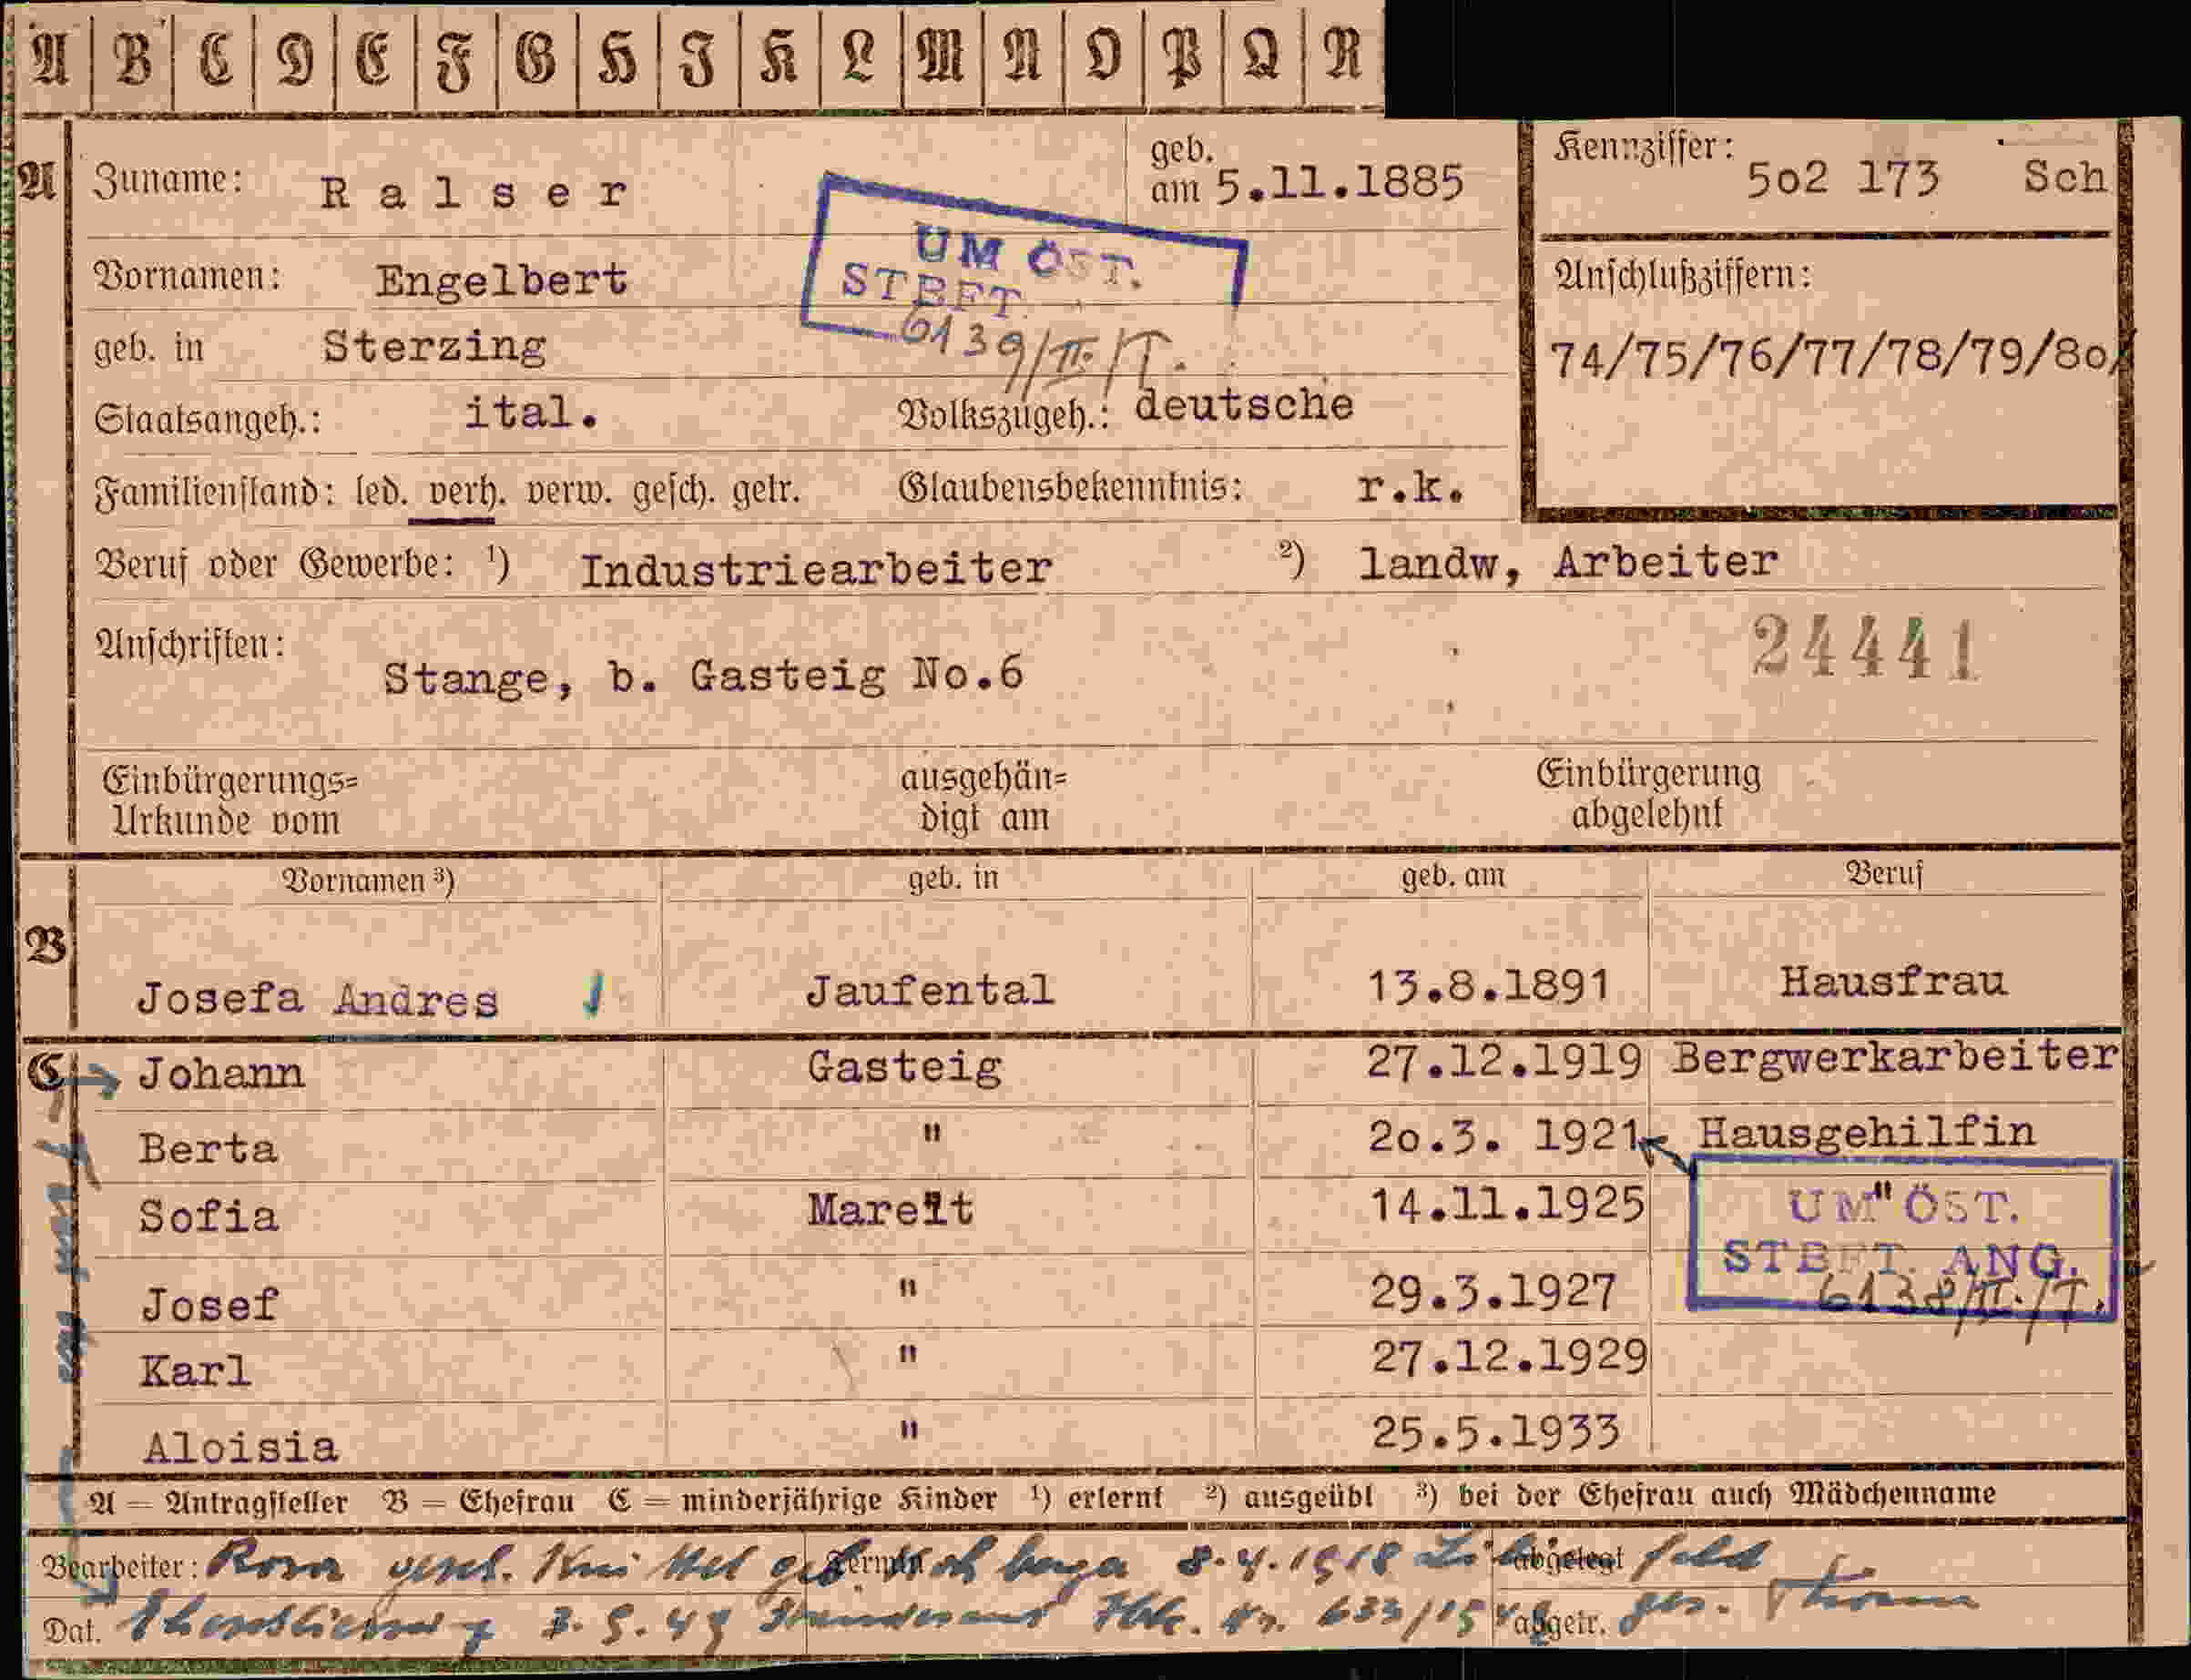 A B C D E F G H I K L M N O P Q R
A Zuname: Ralser geb. am 5.11.1885 Kennziffer: 5o2 173 Sch
UM ÖST.
Vornamen: Engelbert STBFT. Anschlußziffern:
6139/III./T.
geb. in Sterzing 74/75/76/77/78/79/8o/
Staatsangeh.: ital. Volkszugeh.: deutsche
Familienstand: led. verh. verw. gesch. getr. Glaubensbekenntnis: r.k.
Beruf oder Gewerbe: ¹) Industriearbeiter ²) landw, Arbeiter
Anschriften: 24441
Stange, b. Gasteig No.6
Einbürgerungs= ausgehän= Einbürgerung
Urkunde vom digt am abgelehnt
Vornamen ³) geb. in geb. am Beruf
B
Josefa Andres Jaufental 13.8.1891 Hausfrau
C Johann Gasteig 27.12.1919 Bergwerkarbeiter
Berta " 2o.3. 1921 Hausgehilfin
Sofia Mareit 14.11.1925 "
UM ÖST.
STBFT. ANG.
Josef " 29.3.1927
6138/III./T.
Karl " 27.12.1929
Aloisia " 25.5.1933
A = Antragsteller B = Ehefrau C = minderjährige Kinder ¹) erlernt ²) ausgeübt ³) bei der Ehefrau auch Mädchenname
Bearbeiter: Rosa Termin 8.4.1918 abgelegt
Dat. Eheschliessung 3.5.49 Standesamt Nr. 633/1949 abgetr. gez.